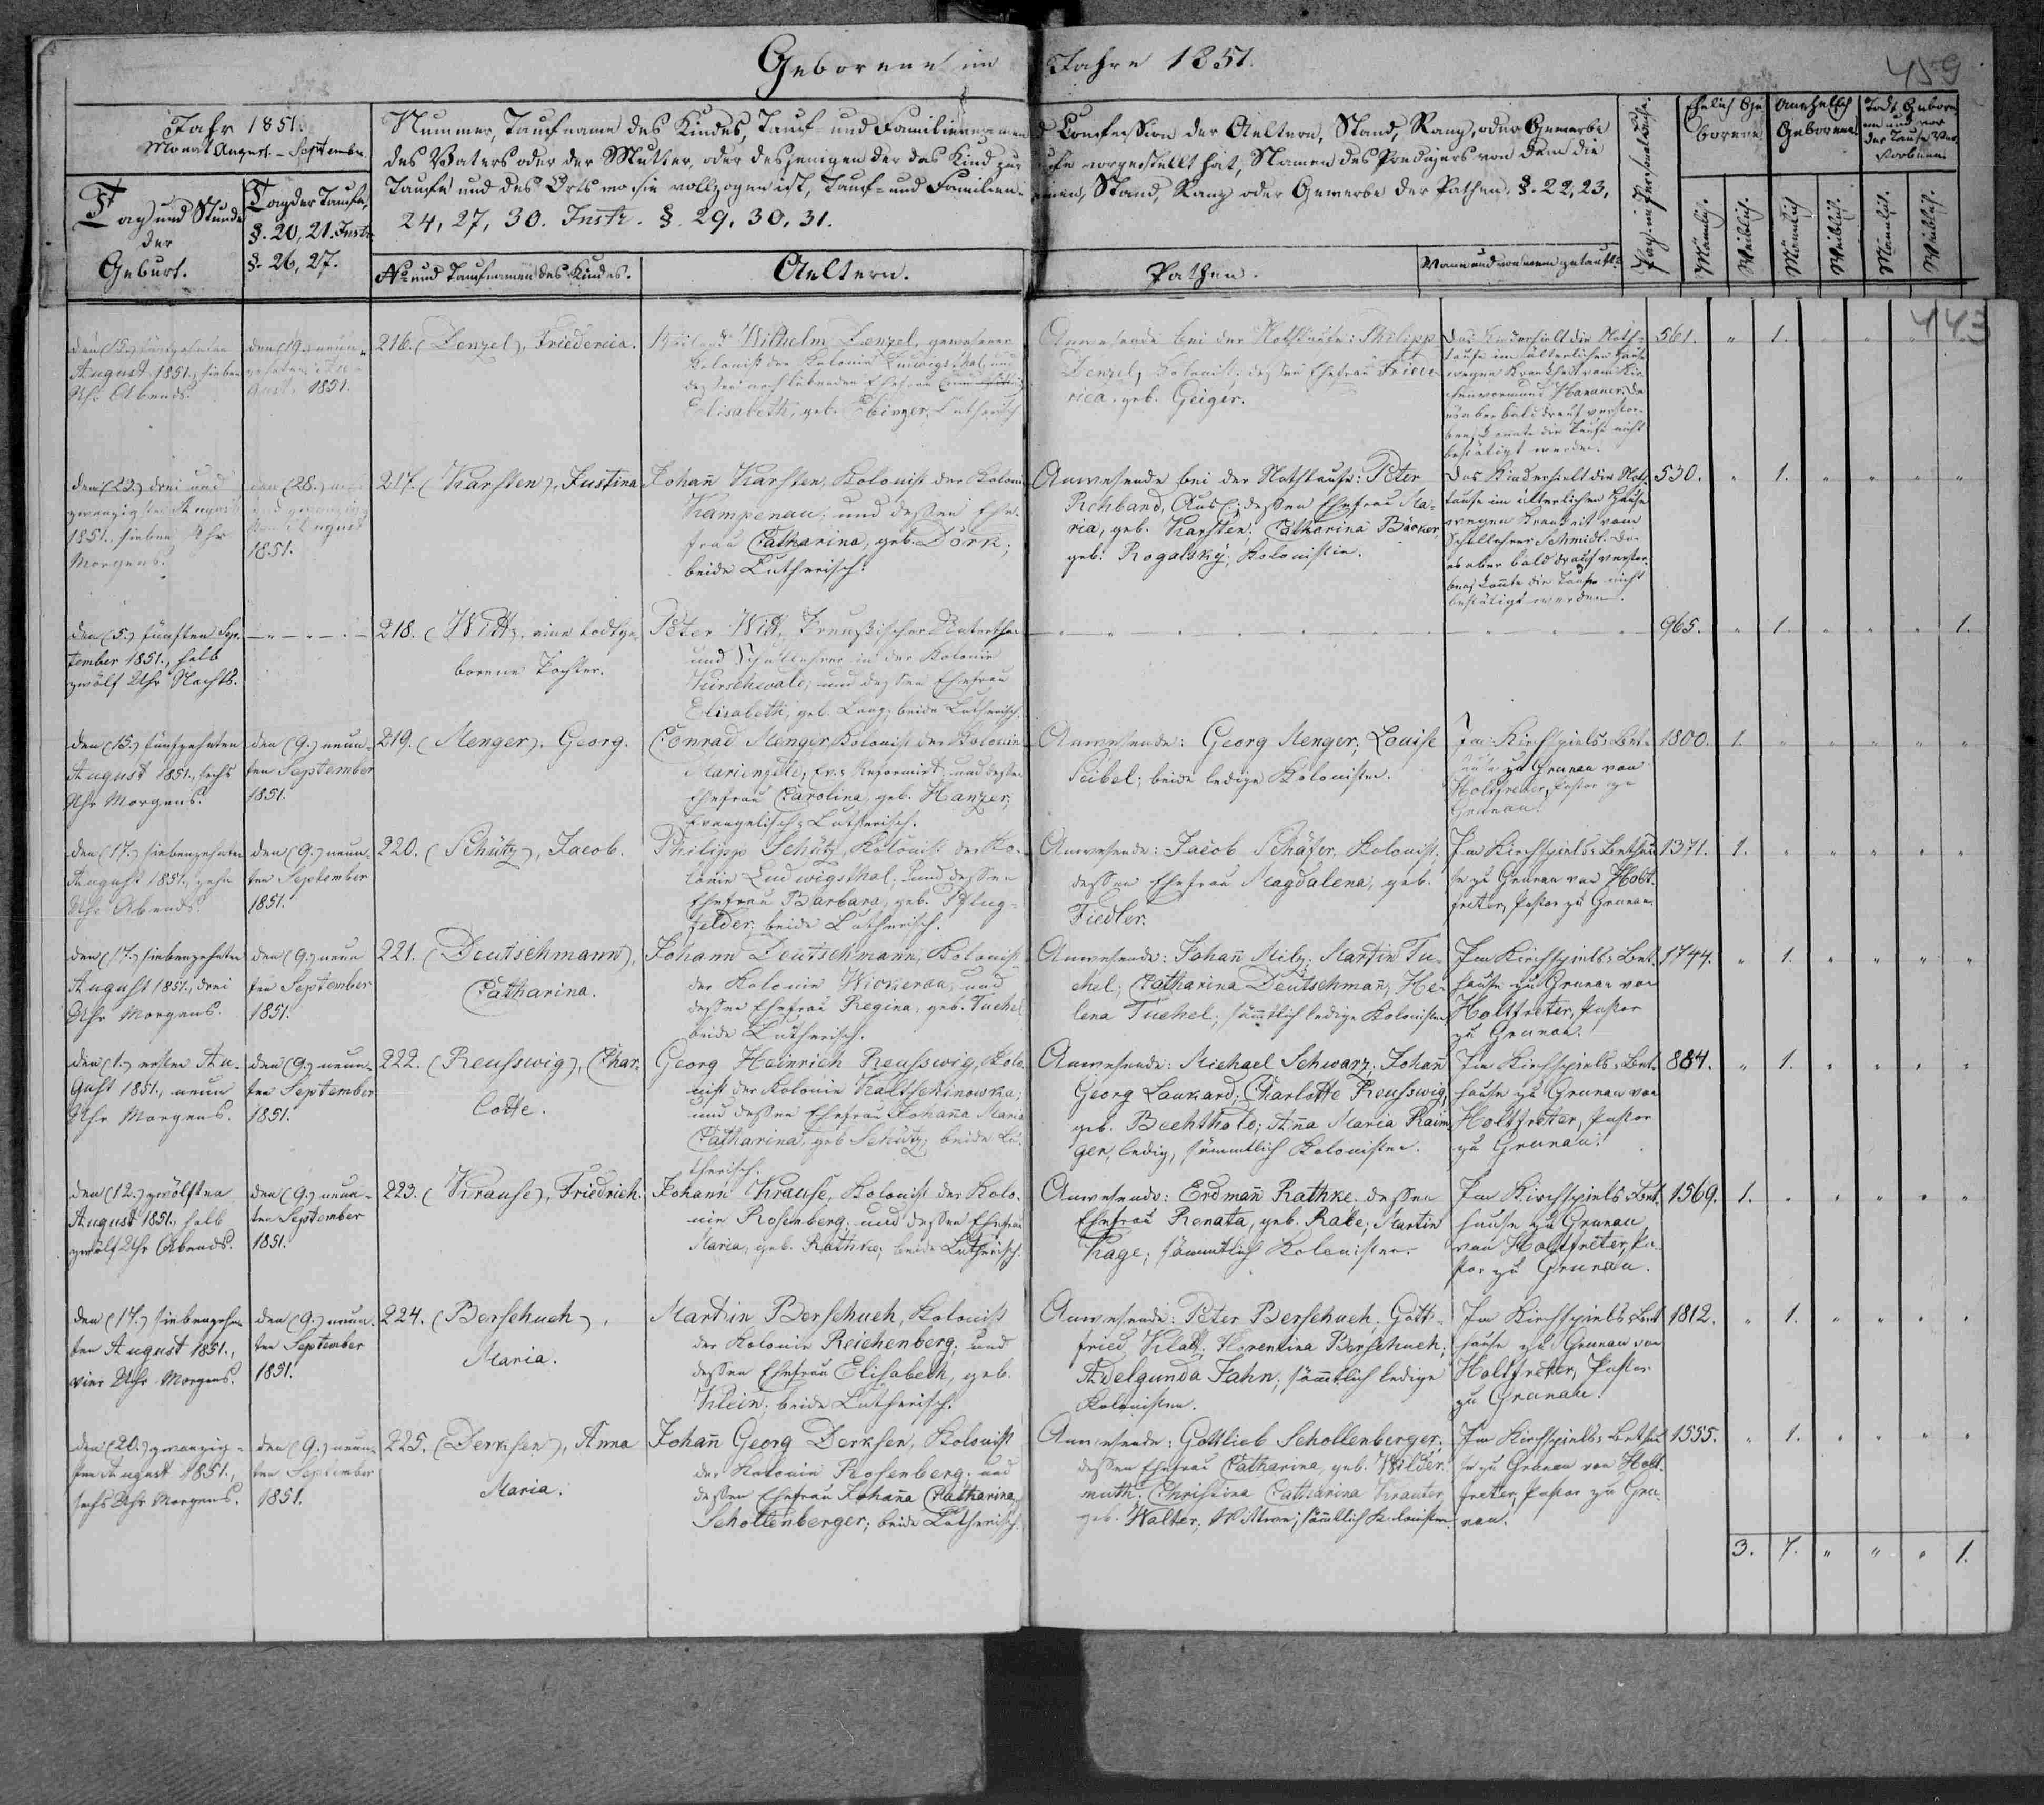 Geborene im Jahre 1851.
459
Jahr 1851.
Monat August. - September.
Tag und Stunde
der
Geburt.
Tag der Taufe.
§. 20, 21. Instr.
§. 26, 27.
Nummer, Taufname des Kindes, Tauf- und Familiennamen
des Vaters oder der Mutter, oder desjenigen der das Kind zur
Taufe und des Orts wo sie vollzogen ist, Tauf- und Familien-
24, 27, 30. Instr. §. 29, 30, 31.
Nº und Taufnamen des Kindes.
Aeltern.
Confession der Aeltern, Stand, Rang, oder Gewerbe
vorgestellt hat, Namen des Predigers von dem die
Stand, Rang oder Gewerbe der Pathen. §. 22, 23,
Pathen.
Wann und von wem getauft.
Pag. im Personalbuche.
Ehelich Ge
borene
Unehelich
Geborene
Todt Gebore
ne und vor
der Taufe Ver
storbene
Männlich.
Weiblich.
Männlich
Weiblich.
Männlich.
Weiblich.
443
den (15.) fünfzehnten
August 1851., sieben
Uhr Abends.
den (19.) neun-
zehnten Au-
gust 1851.
216. (Denzel), Friederica.
Weiland Wilhelm Denzel, gewesener
Kolonist der Kolonie Ludwigsthal, und
dessen noch lebenden Ehefrau
Elisabeth, geb. Lutherisch.
Anwesende bei der Nothtaufe: Philipp
Denzel, Kolonist, dessen Ehefrau Friede-
rica, geb. Geiger.
Das Kind erhielt die Noth-
taufe im älterlichen Hause
wegen Krankheit vom Kir-
chenvormund Hanauer. Da
es aber bald drauf verstor-
ben, konnte die Taufe nicht
bestätigt werden.
561. " 1.
den (23.) drei und
zwanzigsten August
1851. sieben Uhr
Morgens.
den (28.) acht
und zwanzig
August
1851.
217. (Karsten), Justina
Johann Karsten, Kolonist der Kolonie
Kampenau; und dessen Ehe-
frau Catharina, geb. Dörk;
beide Lutherisch.
Anwesende bei der Nothtaufe: Peter
Rehband, dessen Ehefrau Ma-
ria, geb. Karsten; Catharina Bäcker,
geb. Rogalsky; Kolonistin.
Das Kind erhielt die Noth-
taufe im älterlichen Hause
wegen Krankheit vom
Schullehrer Schmidt. Da
es aber bald drauf verstor-
ben, konnte die Taufe nicht
bestätigt werden.
530. " 1. " " " "
den (5.) fünften Sep-
tember 1851., halb
zwölf Uhr Nachts.
218. (Witt), eine todtge-
borene Tochter.
Peter Witt, Preußischer Unterthan
und Schullehrer in der Kolonie
Kirschwald; und dessen Ehefrau
Elisabeth, geb. Lang; beide Lutherisch.
965. " 1. " " " 1.
den (15.) fünfzehnten
August 1851., sechs
Uhr Morgens.
den (9.) neun-
ten September
1851.
219. (Menger). Georg.
Conrad Menger, Kolonist der Kolonie
Marienfeld, Ev.-Reformirt; und dessen
Ehefrau Carolina, geb. Hanzer;
Evangelisch-Lutherisch.
Anwesende: Georg Menger, Louise
Seibel; beide ledige Kolonisten.
Im Kirchspiels-Bet-
hause zu Grunau von
Holtfreter, Pastor zu
Grunau.
1800. 1. " " " " "
den (17.) siebenzehnten
August 1851., zehn
Uhr Abends.
den (9.) neun-
ten September
1851.
220. (Schütz), Jacob.
Philipp Schütz, Kolonist der Ko-
lonie Ludwigsthal; und dessen
Ehefrau Barbara, geb. Pflug-
felder; beide Lutherisch.
Anwesende: Jacob Schäfer, Kolonist,
dessen Ehefrau Magdalena, geb.
Fiedler.
Im Kirchspiels-Bethau-
se zu Grunau von Holt-
freter, Pastor zu Grunau.
1371. 1. " " " " "
den (17.) siebenzehnten
August 1851., drei
Uhr Morgens.
den (9.) neun
ten September
1851.
221. (Deutschmann),
Catharina.
Johann Deutschmann, Kolonist
der Kolonie Wickerau, und
dessen Ehefrau Regina, geb. Tuchel
beide Lutherisch.
Anwesende: Johann Milz, Martin Tu-
chel; Catharina Deutschmann, He-
lena Tuchel; sämmtlich ledige Kolonisten.
Im Kirchspiels-Bet-
hause zu Grunau von
Holtfreter, Pastor
zu Grunau.
1744. " 1. " " " "
den (1.) ersten Au-
gust 1851., neun
Uhr Morgens.
den (9.) neun-
ten September
1851.
222. (Reusswig), Char-
lotte.
Georg Heinrich Reusswig, Kolo-
nist der Kolonie Kaltschinowka;
und dessen Ehefrau Johanna Maria
Catharina, geb. Schütz; beide Lu-
therisch.
Anwesende: Michael Schwarz; Johann
Georg Laukard; Charlotte Reusswig,
geb. Bechthold; Anna Maria Rain-
ger, ledig, sämmtlich Kolonisten.
Im Kirchspiels-Bet-
hause zu Grunau von
Holtfreter, Pastor
zu Grunau.
884. " 1. " " " "
den (12.) zwölften
August 1851., halb
zwölf Uhr Abends.
den (9.) neun-
ten September
1851.
223. (Krause), Friedrich.
Johann Krause, Kolonist der Kolo-
nie Rosenberg; und dessen Ehefrau
Maria, geb. Rathke; beide Lutherisch.
Anwesende: Erdmann Rathke, dessen
Ehefrau Renata, geb. Rabe; Martin
Hage; sämmtlich Kolonisten.
Im Kirchspiels-Bet-
hause zu Grunau
von Holtfreter, Pa-
stor zu Grunau.
1569. 1. " " " " "
den (17.) siebenzehn-
ten August 1851.,
vier Uhr Morgens.
den (9.) neun-
ten September
1851.
224. (Berschuch),
Maria.
Martin Berschuch, Kolonist
der Kolonie Reichenberg; und
dessen Ehefrau Elisabeth, geb.
Klein; beide Lutherisch.
Anwesende: Peter Berschuch, Gott-
fried Klatt; Florentina Berschuch;
Adelgunda Jahn; sämmtlich ledige
Kolonisten.
Im Kirchspiels-Bet-
hause zu Grunau von
Holtfreter, Pastor
zu Grunau.
1812. " 1. " " " "
den (20.) zwanzig-
sten August 1851.,
sechs Uhr Morgens.
den (9.) neun-
ten September
1851.
225. (Derksen), Anna
Maria.
Johann Georg Derksen, Kolonist
der Kolonie Rosenberg; und
dessen Ehefrau Johanna Catharina
Schollenberger; beide Lutherisch.
Anwesende: Gottlieb Schollenberger,
dessen Ehefrau Catharina, geb. Wilder-
muth; Christina Catharina Krauter
geb. Walter, Wittwe; sämmtlich Kolonisten.
Im Kirchspiels-Bethau-
se zu Grunau von Holt-
freter, Pastor zu Gru-
nau.
1555. " 1. " " " "
3. 7. " " " 1.